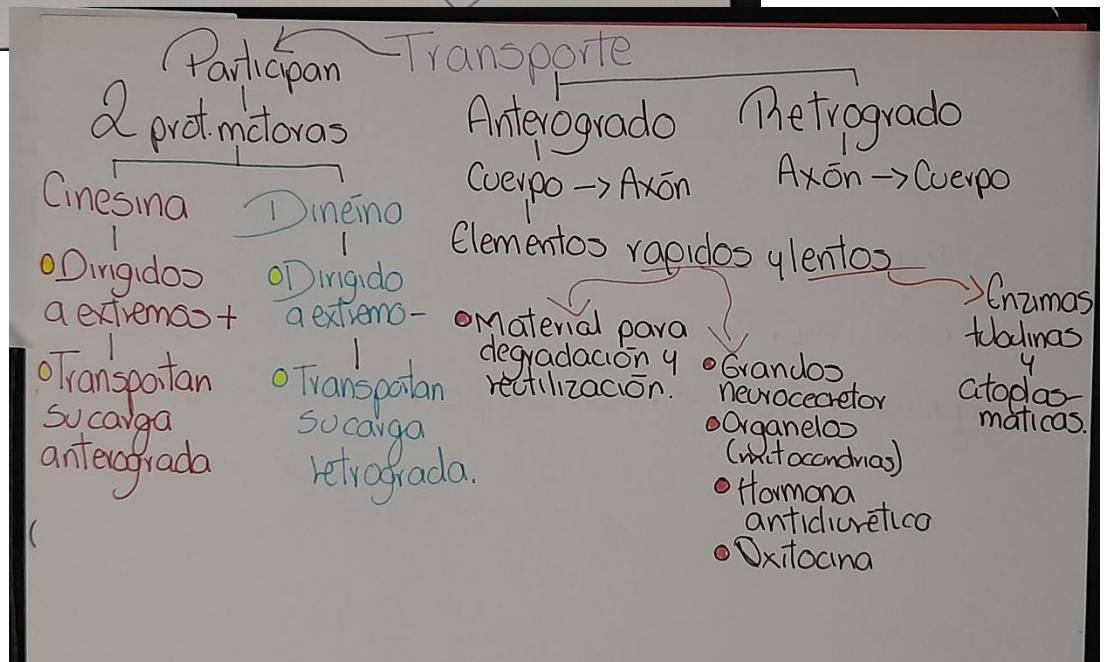 Transporte
Participan
2 prot. motoras
Cinesina
Dirigidos
a extremos +
Transportan
su carga
anterograda
Dineíno
Dirigido
a extremo -
Transportan
su carga
retrograda.
Anterogrado
Cuerpo -> Axón
Elementos rapidos y lentos
Material para
degradación y
reutilización.
Grandos
neurocecretor
Organelos
(mitocondrias)
Hormona
antidiurético
Oxitocina
Enzimas
tubulinas
y
citoplas-
máticas.
Retrogrado
Axón -> Cuerpo